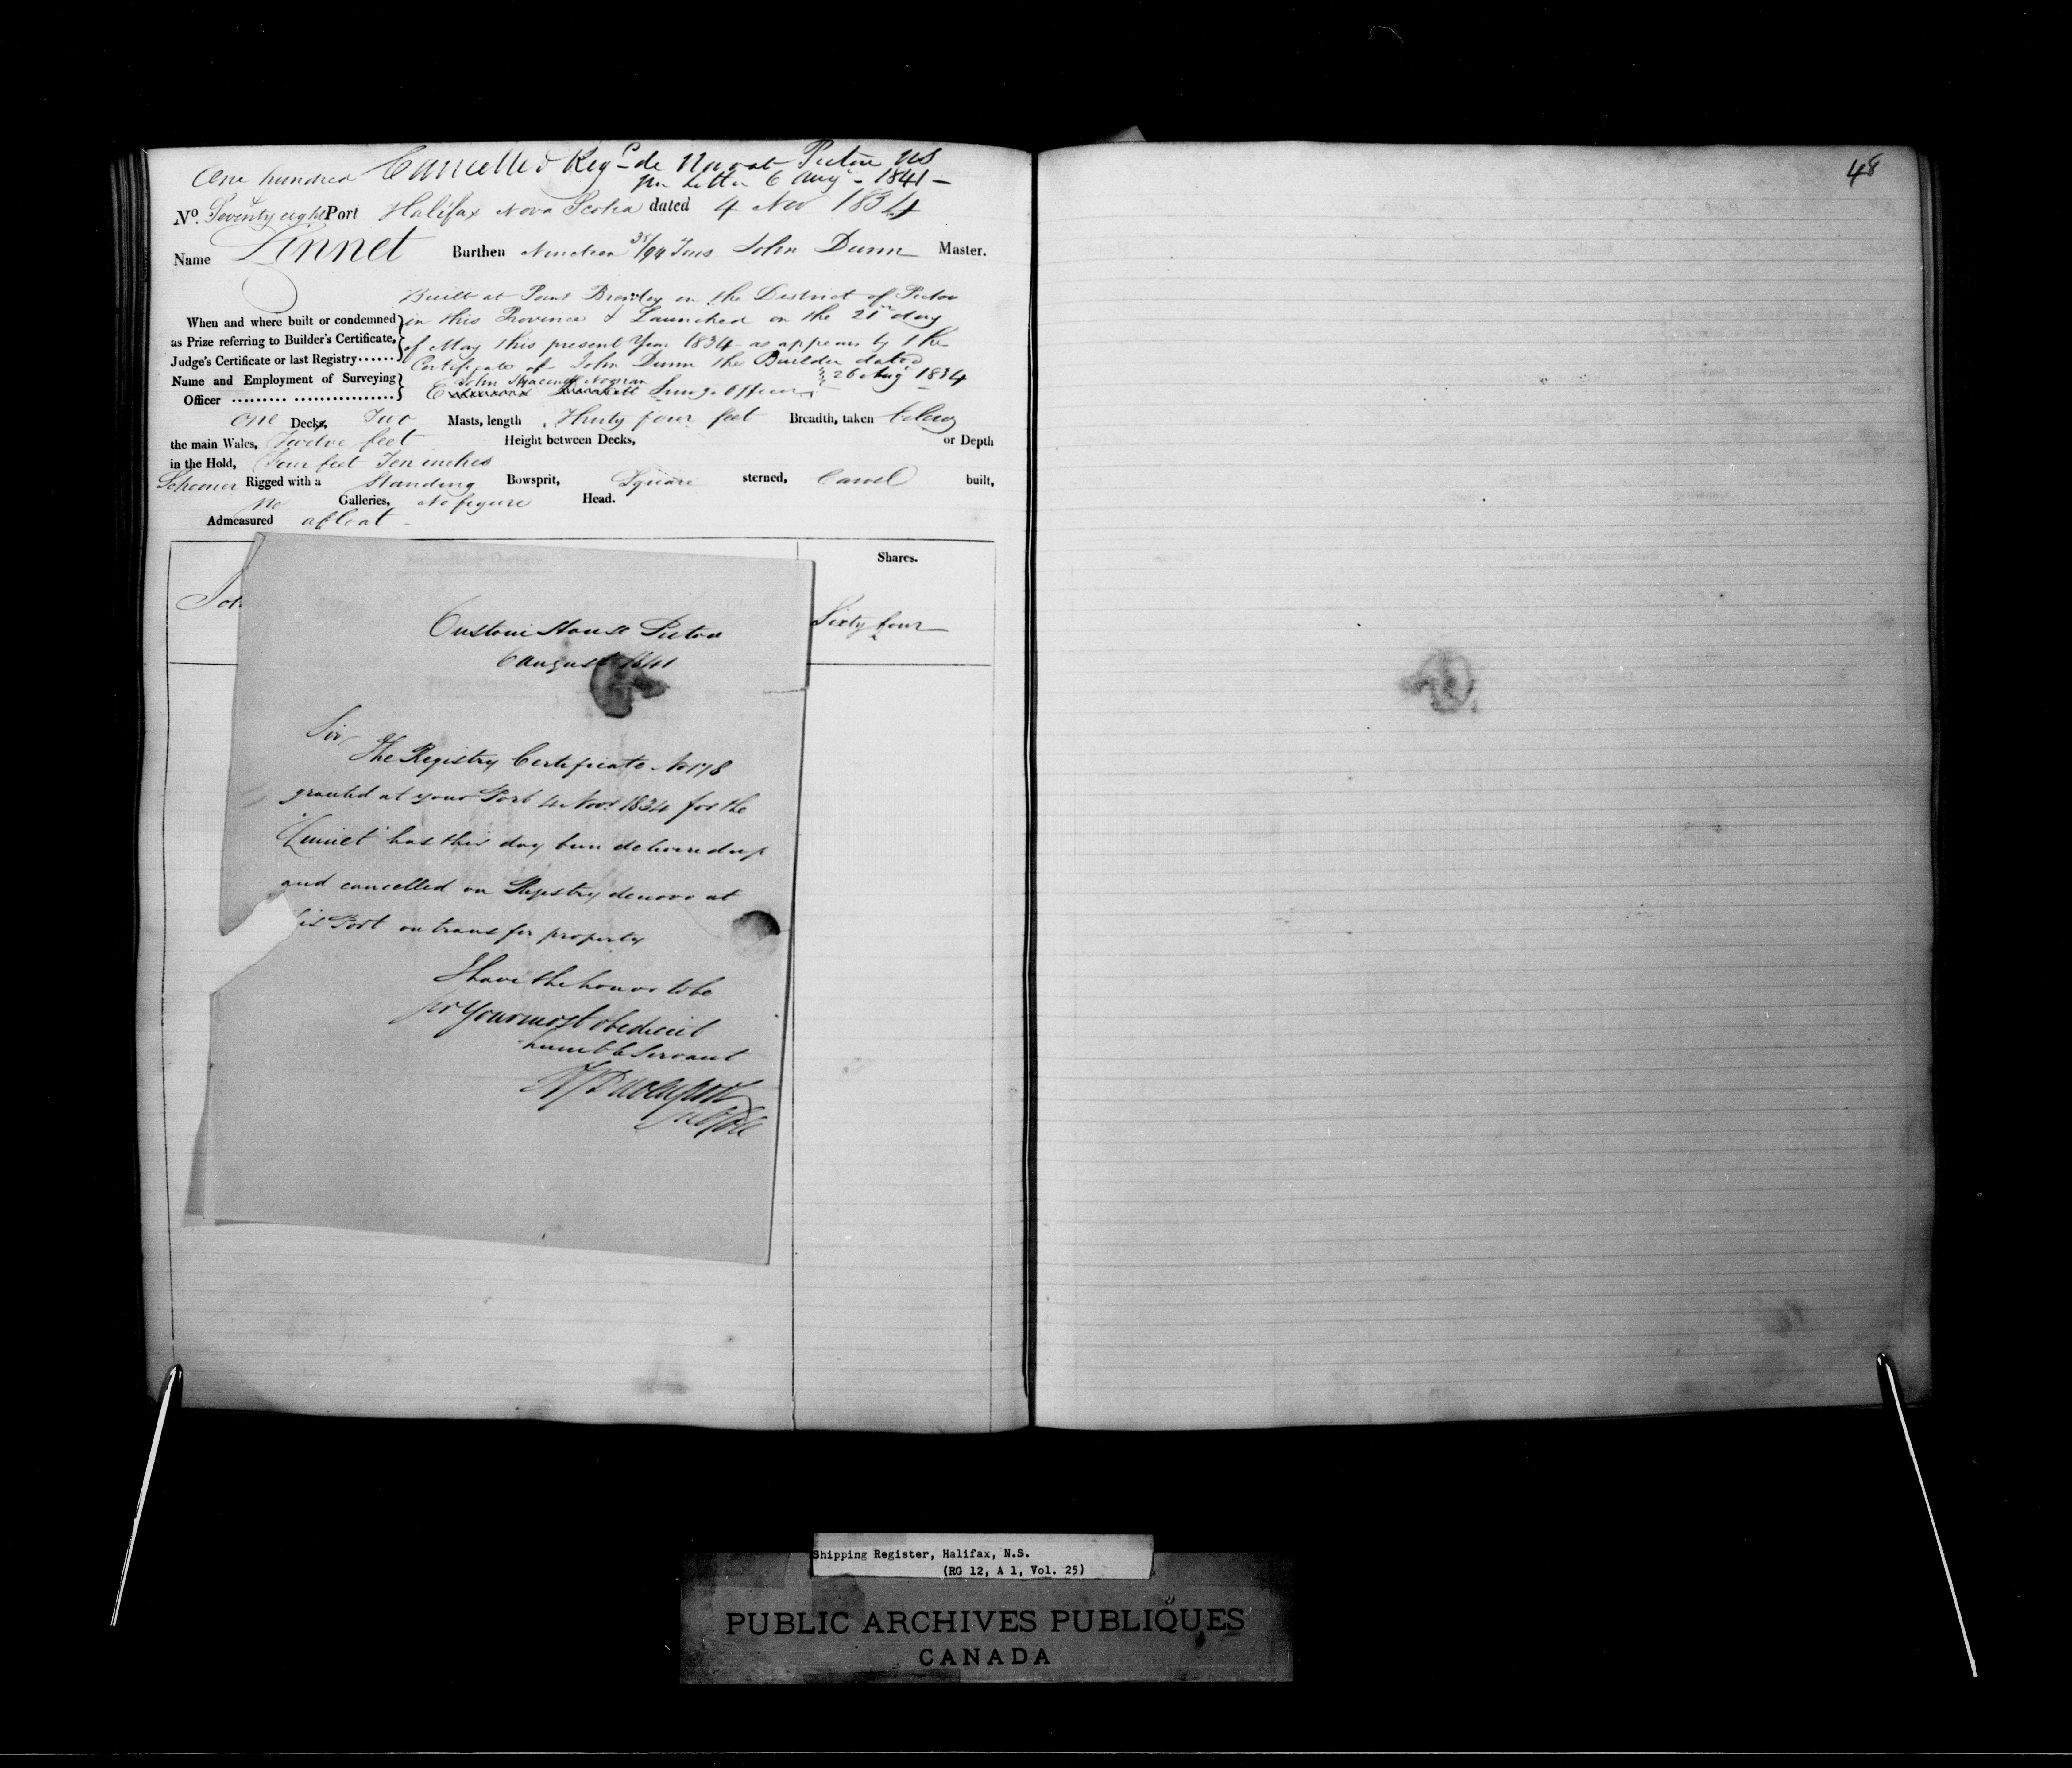 Cancelled Reg de Novo at Pictou NS
One hundred per Letter 6 Augt - 1841 -
No. Seventy eight Port Halifax Nova Scotia dated 4 Nov 1834
Name Linnet Burthen Nineteen 35/94 Tons John Dunn Master.
Built at Point Brawley in the District of Pictou
When and where built or condemned in this Province & Launched on the 21st day
as Prize referring to Builder's Certificate, of May this present Year 1834 as appears by the
Judge's Certificate or last Registry...... Certificate of John Dunn the Builder dated
26 Augt 1834
Name and Employment of Surveying John
Officer ......... ................ Survg. Officer
One Decks, Two Masts, length Thirty four feet Breadth, taken below
the main Wales, Twelve feet Height between Decks, or Depth
in the Hold, Four feet Ten inches
Schooner Rigged with a Standing Bowsprit, Square sterned, Carvel built,
No Galleries, No figure Head.
Admeasured afloat -
Shares.
Joh
Sixty four
Custom House Pictou
6 August 1841
Sir,
The Registry Certificate No 178
granted at your Port 4 Novr 1834 for the
"Linnet" has this day been delivered up
and cancelled on Registry denovo at
his Port on transfer property
I have the honor to be
Sir Your most obedient
humble Servant
48
Shipping Register, Halifax, N.S.
(RG 12, A 1, Vol. 25)
PUBLIC ARCHIVES PUBLIQUES
CANADA